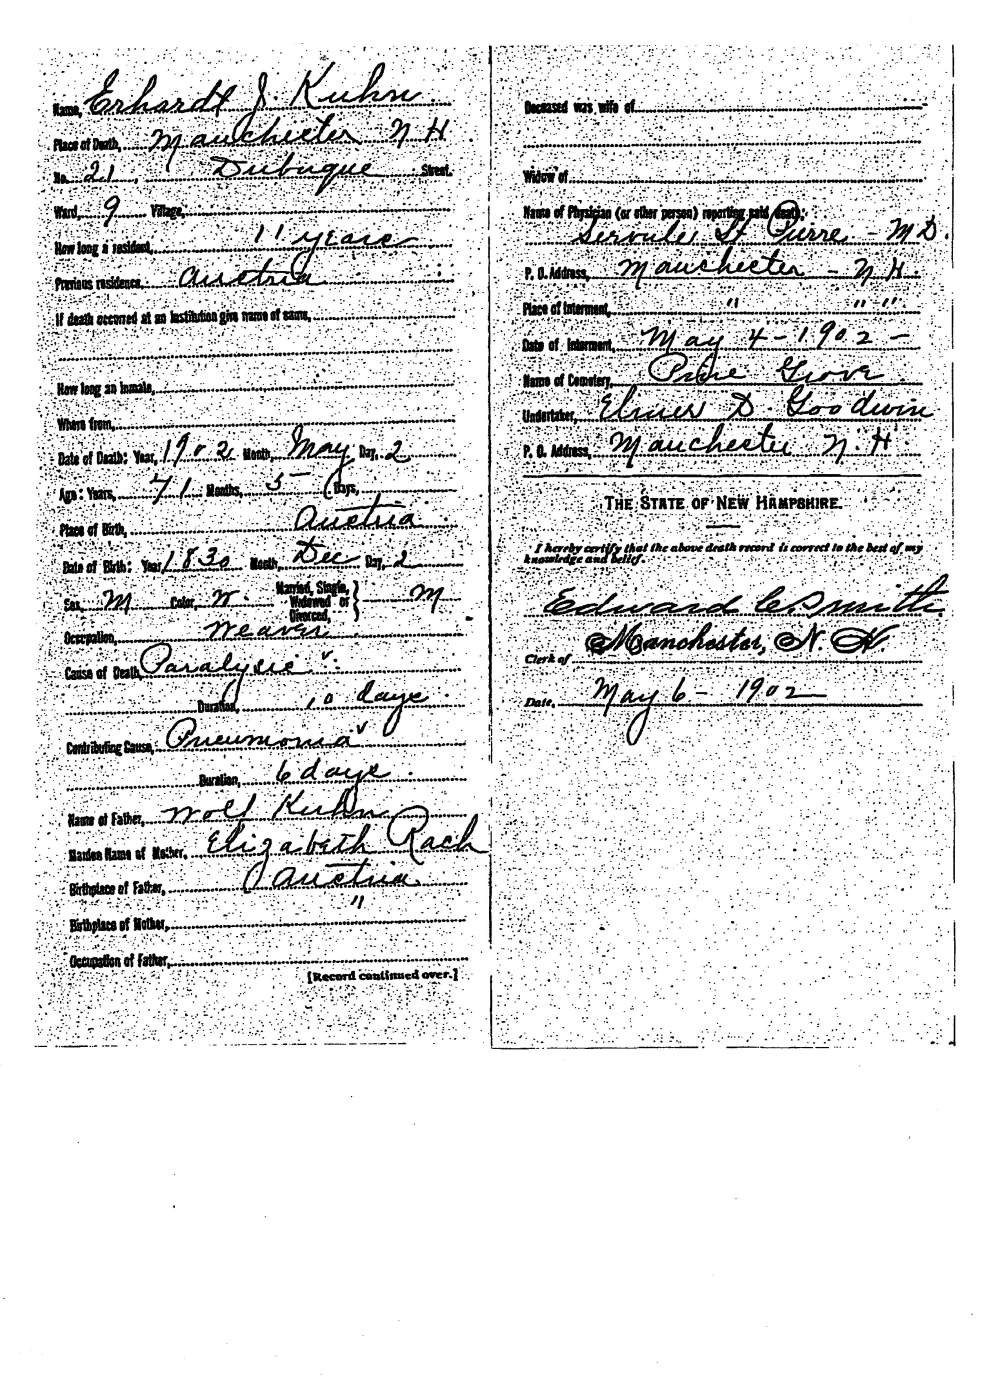 Name, Erhardt J. Kuhn
Place of Death, Manchester N H
No. 21 Dubuque Street.
Ward, 9 Village,
How long a resident, 11 years
Previous residence, Austria
If death occurred at an institution give name of same,
How long an inmate,
Where from,
Date of Death: Year, 1902 Month, May Day, 2
Age: Years, 71 Months, 5 Days,
Place of Birth, Austria
Date of Birth: Year 1830 Month, Dec Day, 2
Sex, M Color, W. Married, Single, Widowed or Divorced, } M
Occupation, Weaver
Cause of Death, Paralysis
Duration, 10 days
Contributing Cause, Pneumonia
Duration, 6 days
Name of Father, Wolf Kuhn
Maiden Name of Mother, Elizabeth Rach
Birthplace of Father, Austria
Birthplace of Mother, "
Occupation of Father,
[Record continued over.]
Deceased was wife of
Widow of
Name of Physician (or other person) reporting said death:
St Pierre - M D.
P. O. Address, Manchester - N H.
Place of Interment, " " "
Date of Interment, May 4 - 1902 -
Name of Cemetery, Pine Grove
Undertaker, Elmer D Goodwin
P. O. Address, Manchester N. H.
THE STATE OF NEW HAMPSHIRE.
I hereby certify that the above death record is correct to the best of my
knowledge and belief.
Edward C. Smith
Clerk of Manchester, N. H.
Date, May 6 - 1902